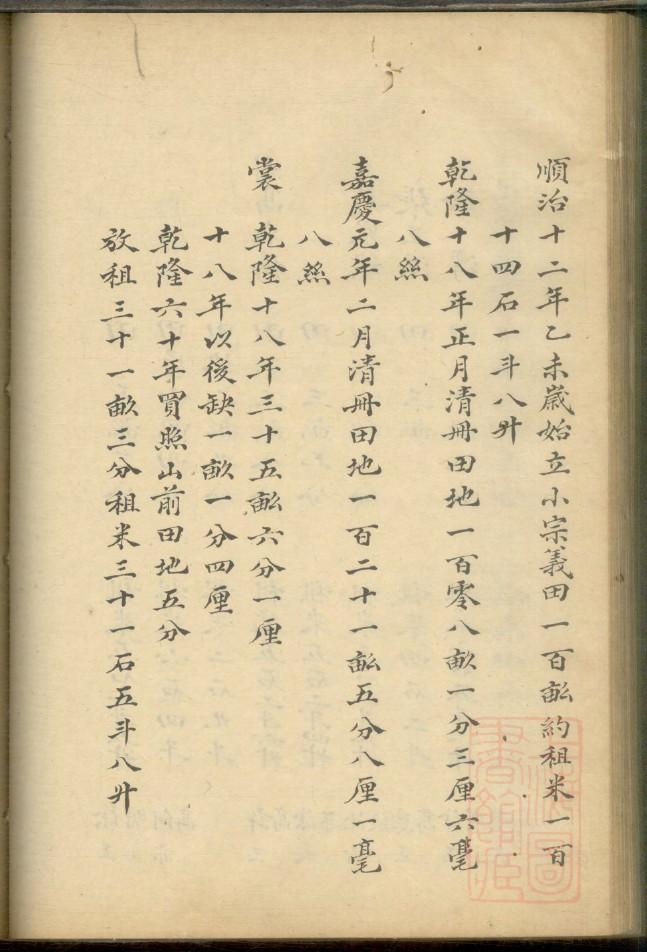 順治十二年乙未歲始立小宗義田一百畝約租米一百
十四石一斗八升
乾隆十八年正月清冊田地一百零八畝一分三厘六毫
八絲
嘉慶元年二月清冊田地一百二十一畝五分八厘一毫
八絲
裳 乾隆十八年三十五畝六分一厘
十八年以後缺一畝一分四厘
乾隆六十年買照山前田地五分
放租三十一畝三分租米三十一石五斗八升